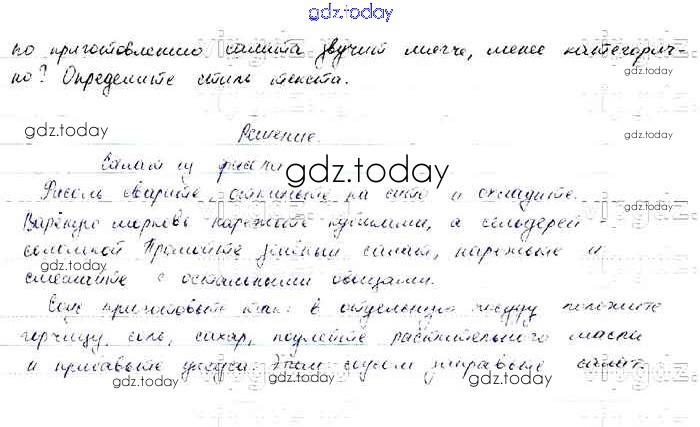 gdz.today
по приготовлению салата звучит мягче, менее категорич-
но? Определите стиль текста.
gdz.today
gdz.today
Решение.
gdz.today
Салат из фасоли
gdz.today
Фасоль сварите, откиньте на сито и охладите.
gdz.today
Варёную морковь нарежьте кубиками, а сельдерей
соломкой. Промойте зелёный салат, нарежьте и
gdz.today
смешайте с остальными овощами.
gdz.today
Соус приготовьте так: в отдельную посуду положите
горчицу, соль, сахар, подлейте растительного масла
и прибавьте уксуса. Этим соусом заправьте салат.
gdz.today
gdz.today
gdz.today